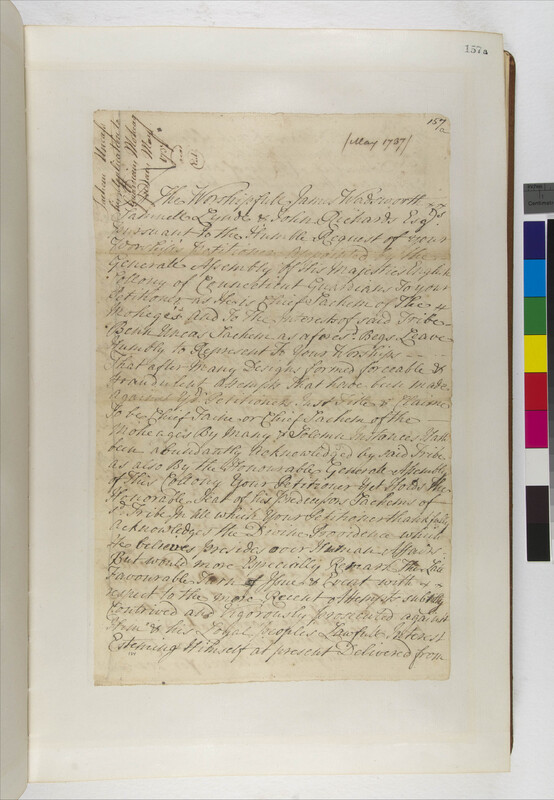 157a
157
a
/May 1737/
The Worshipfull James Wadsworth
Samuell Lynde & John Richards Esqrs.
Pursuant to the Humble Request of your
Worships Petitioner Appointed by the
Generale Assembly of His Majesties English
Collony of Connecticut Guardians To your
Petitioner as He is Chief Sachem of The
Moheges and To the Interests of said Tribe
Benn Uncas Sachem as aforesd. Begs Leave
Humbly to Represent To Your Worships
That after many Designs formed forceable &
fraudulent Attempts that have been made
against yr. Petitioners Just Title & Claime
To be Chief Sachem of the
Moheages By Many & Solemn Instances Hath
been abundantly Acknowledged by said Tribe
as also By the Honourable Generale Assembly
of this Collony Your Petitioner Yet Holds the
Honorable Seat of his Predecessors Sachems of
sd. Tribe In all which Your Petitioner thankfully
acknowledges the Divine Providence which
He believes presides over Human Affairs
But would more Especially Remark The Late
Favourable Turn of Time & Event with
respect to the more Recent Attempts subtilly
Contrived and Vigorously prosecuted against
Him & his Loyal peoples Lawfull Interest
Esteeming Himself at present Delivered from